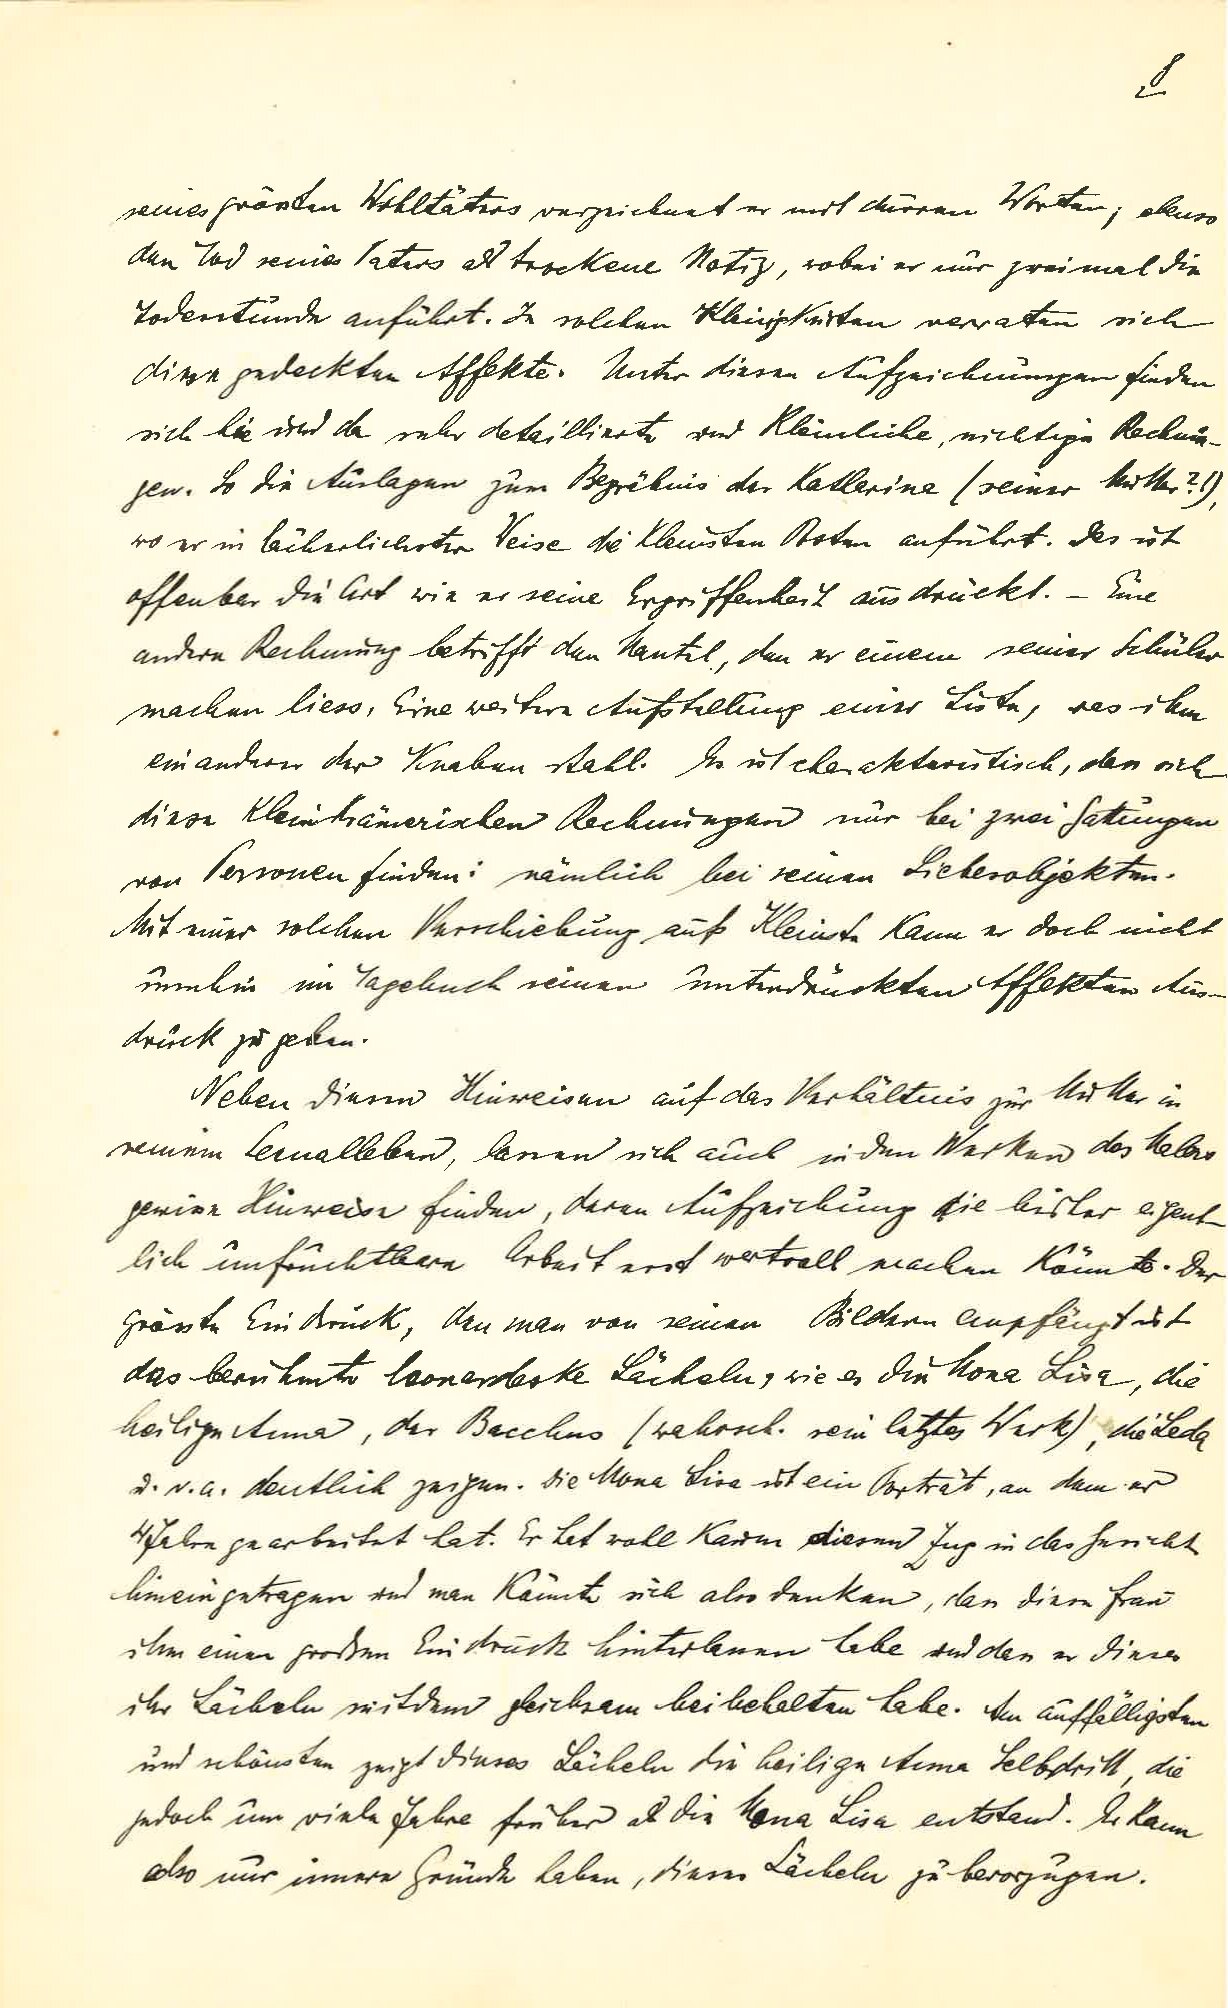 8
seines grössten Wohltäters verzeichnet er mit dürren Worten; ebenso
den Tod seines Vaters als trockene Notiz, wobei er nur zweimal die
Todesstunde anführt. In solchen Kleinigkeiten verraten sich
diese gedeckten Affekte. Unter diesen Aufzeichnungen finden
sich hie und da sehr detaillierte und kleinliche, nichtige Rechnun-
gen. So die Auslagen zum Begräbnis der Katherina (seiner Mutter?!),
wo er in lächerlichster Weise die kleinsten Posten anführt. Das ist
offenbar die Art wie er seine Ergriffenheit ausdrückt. – Eine
andere Rechnung betrifft den Mantel, den er einem seiner Schüler
machen liess. Eine weitere Aufstellung einer Liste, was ihm
ein anderer der Knaben stahl. Es ist charakteristisch, dass sich
diese kleinkrämerischen Rechnungen nur bei zwei Gattungen
von Personen finden: nämlich bei seinen Liebesobjekten.
Mit einer solchen Verschiebung aufs Kleinste kann er doch nicht
umhin im Tagebuch seinen unterdrückten Affekten Aus-
druck zu geben.
Neben diesen Hinweisen auf das Verhältnis zur Mutter in
seinem Sexualleben, lassen sich auch in den Werken des Malers
gewisse Hinweise finden, deren Aufzeichung die bisher eigent-
lich unfruchtbare Arbeit erst wertvoll machen könnte. Der
grösste Eindruck, den man von seinen Bildern empfängt ist
das berühmte leonardeske Lächeln, wie es die Mona Lisa, die
heilige Anna, der Bacchus (wahrsch. sein letztes Werk), die Leda
u. v. a. deutlich zeigen. Die Mona Lisa ist ein Porträt, an dem er
4 Jahre gearbeitet hat. Er hat wohl kaum diesen Zug in das Gesicht
hineingetragen und man könnte sich also denken, dass diese Frau
ihm einen grossen Eindruck hinterlassen habe und dass er dieses
ihr Lächeln seitdem gleichsam beibehalten habe. Am auffälligsten
und schönsten zeigt dieses Lächeln die heilige Anna Selbdritt, die
jedoch um viele Jahre früher als die Mona Lisa entstand. Er kann
also nur innere Gründe haben, dieses Lächeln zu bevorzugen.